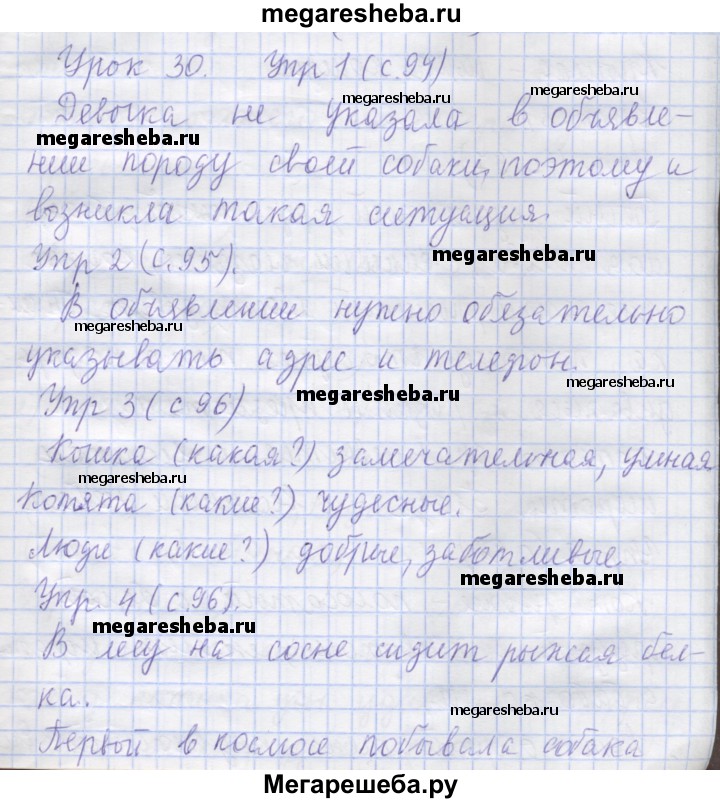 megaresheba.ru
Урок 30. Упр 1 (с.94)
megaresheba.ru megaresheba.ru
Девочка не указала в объявле-
megaresheba.ru
нии породу своей собаки, поэтому и
возникла такая ситуация.
megaresheba.ru
Упр 2 (с.95).
В объявлении нужно обязательно
megaresheba.ru
указывать адрес и телефон.
megaresheba.ru
megaresheba.ru
Упр 3 (с 96)
Кошка (какая?) замечательная, умная
megaresheba.ru
Котята (какие?) чудесные.
Люди (какие?) добрые, заботливые.
megaresheba.ru
Упр. 4 (с.96).
megaresheba.ru
В лесу на сосне сидит рыжая бел-
ка.
megaresheba.ru
Первой в космосе побывала собака
Мегарешеба.ру